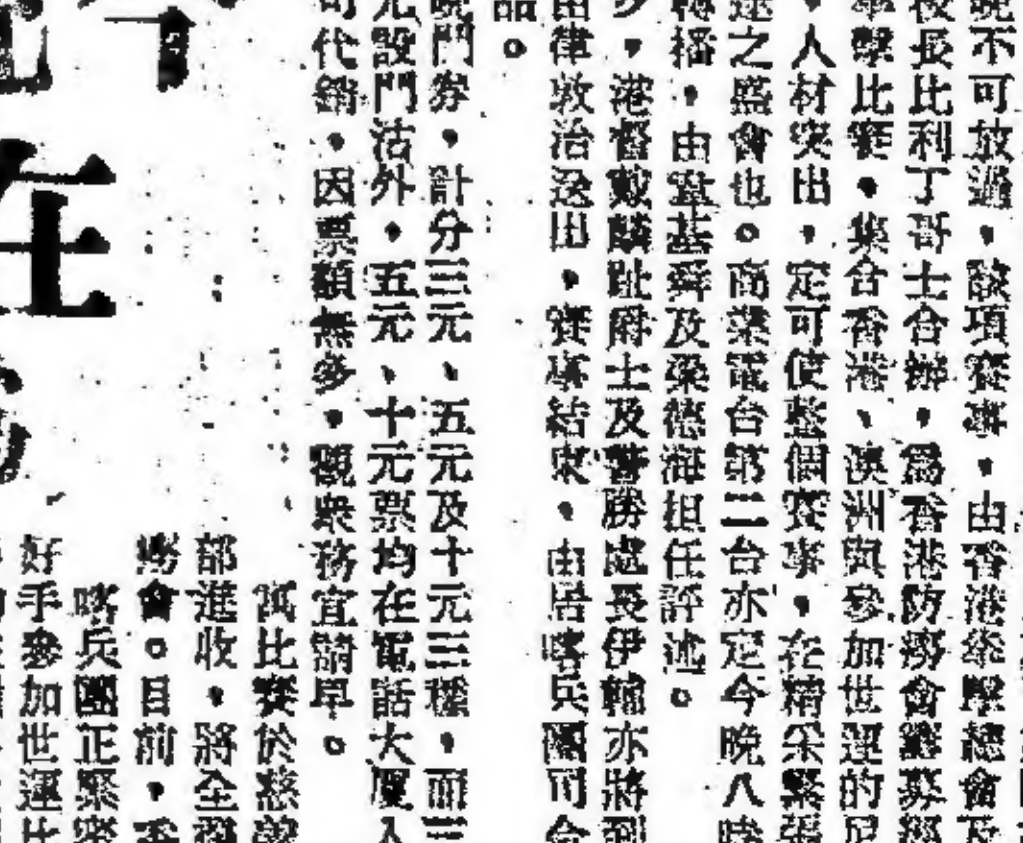 晚不可放過，該項賽事，由香港拳擊總會及
校長比利丁哥士合辦，爲香港防癆會籌募經
拳擊比賽，集合香港、澳洲與參加世運的尼
，人材突出，定可使整個賽事，在精采緊張
達之盛會也。商業電台第二台亦定今晚八時
轉播，由 基舜及梁德海担任評述。
多，港督戴麟趾爵士及警 勝處長伊輔亦將到
由律敦治送出，賽事結束，由居喀兵團司令
品。
晚門券，計分三元、五元及十元三種，而三
元設門沽外，五元、十元票均在電話大厦入
司代銷，因票額無多，觀衆務宜購早。
今
在
萬比賽於慈善
部進收，將全
癆會。目前，
喀兵團正聚
好手參加世運比